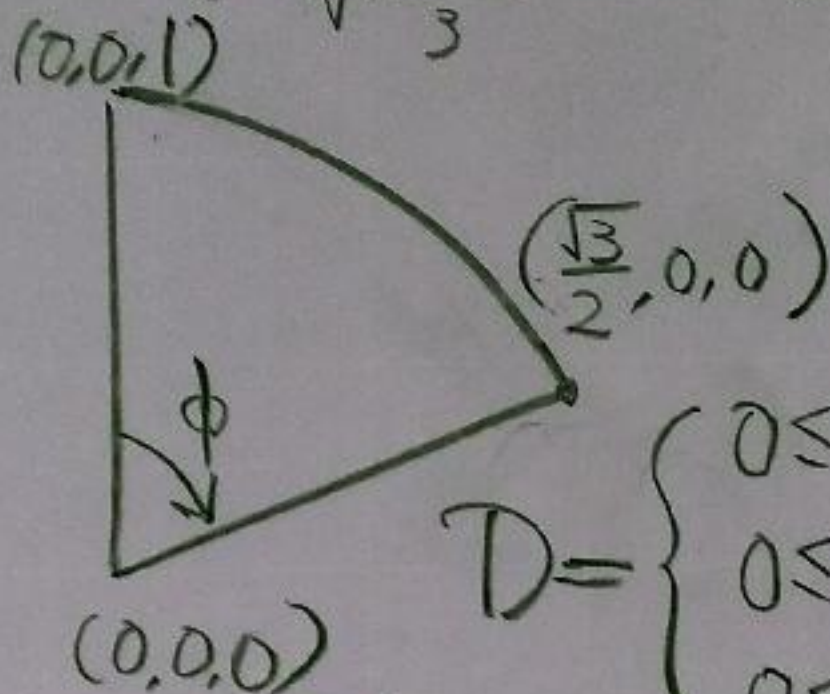 √ 3
(0,0,1)
(√3/2,0,0)
ϕ
0≤
D={ 0≤
(0,0,0)